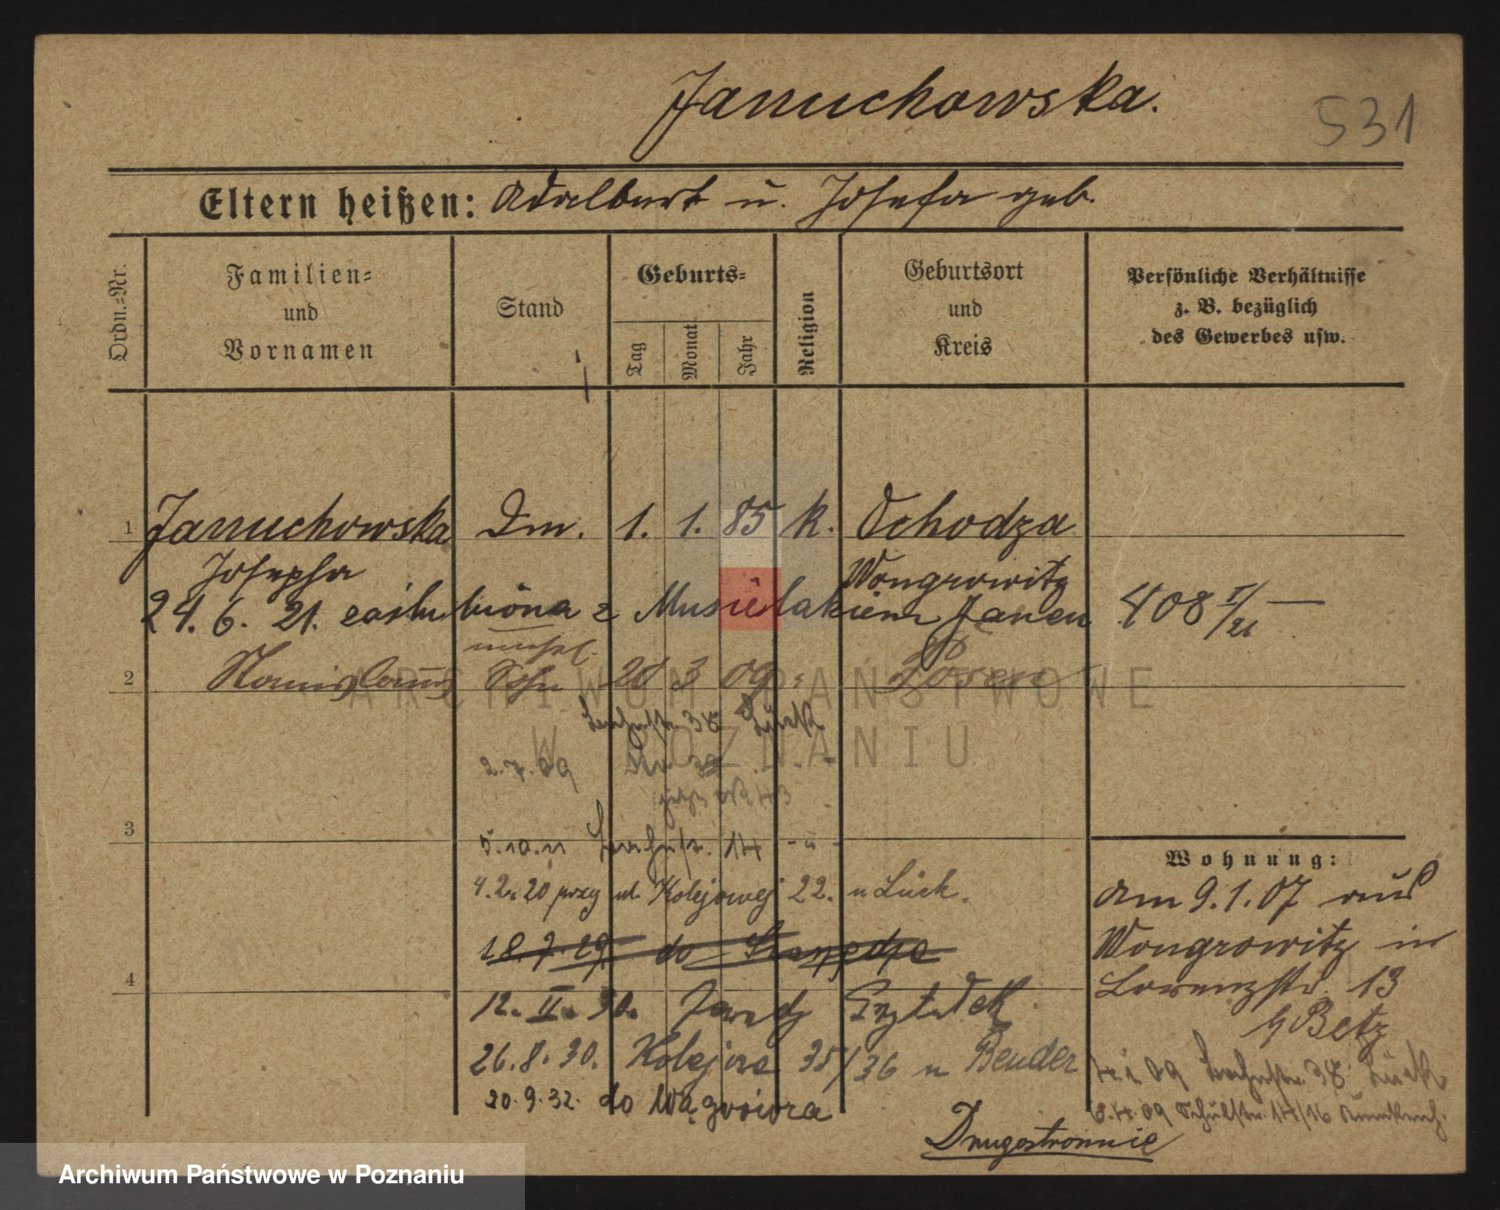 Januchowska.
531
Eltern heißen: Adalbert u. Josefa geb.
Ordn.=Nr.
Familien=
und
Vornamen
Stand
Geburts=
Tag
Monat
Jahr
Religion
Geburtsort
und
Kreis
Persönliche Verhältnisse
z. B. bezüglich
des Gewerbes usw.
1 Januchowska Dm. 1. 1. 85 k. Ochodza
Josepha Wongrowitz
24. 6. 21. zaślubiona z Musielakiem Janem 408
unehel.
2 Stanislaus Sohn 20 3 09 Posen
ARCHIWUM PAŃSTWOWE
38 Lück
W POZNANIU
2.7.09
3
5.10.11 14 - u -
Wohnung:
4.2.20 przy ul. Kolejowej 22. u Lück.
am 9.1.07 aus
18.7.29. do
Wongrowitz in
4
Lorenzstr. 13
12. II. 30.
b/ Betz
26.8.30. Kolejowa 35/36 u Bender
09 38 Lück
20.9.32. do Wągrowca
09 Schulstr. 14/16
Drugostronnie
Archiwum Państwowe w Poznaniu